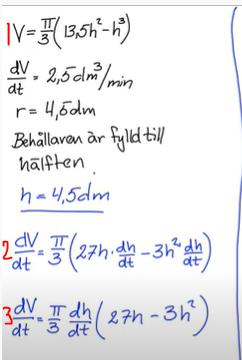 1 V = π/3 (13,5h² - h³)
dV/dt = 2,5 dm³/min
r = 4,5 dm
Behållaren är fylld till
hälften.
h = 4,5 dm
2 dV/dt = π/3 (27h · dh/dt - 3h² dh/dt)
3 dV/dt = π/3 dh/dt (27h - 3h²)